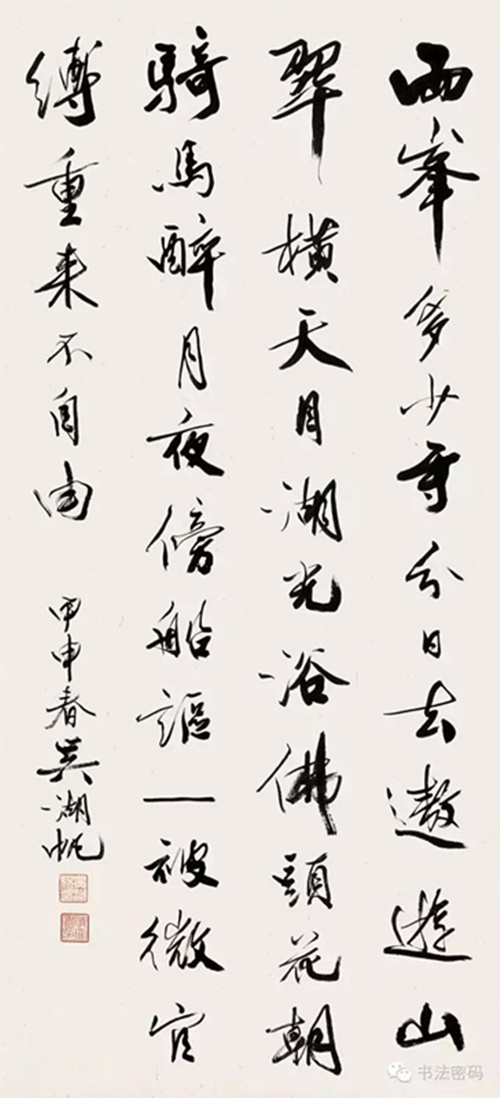 兩峯多少寺分日去遨遊山
翠橫天目湖光浴佛頭花朝
騎馬醉月夜傍船謳一被微官
縛重来不自由
甲申春吳湖帆
书法密码